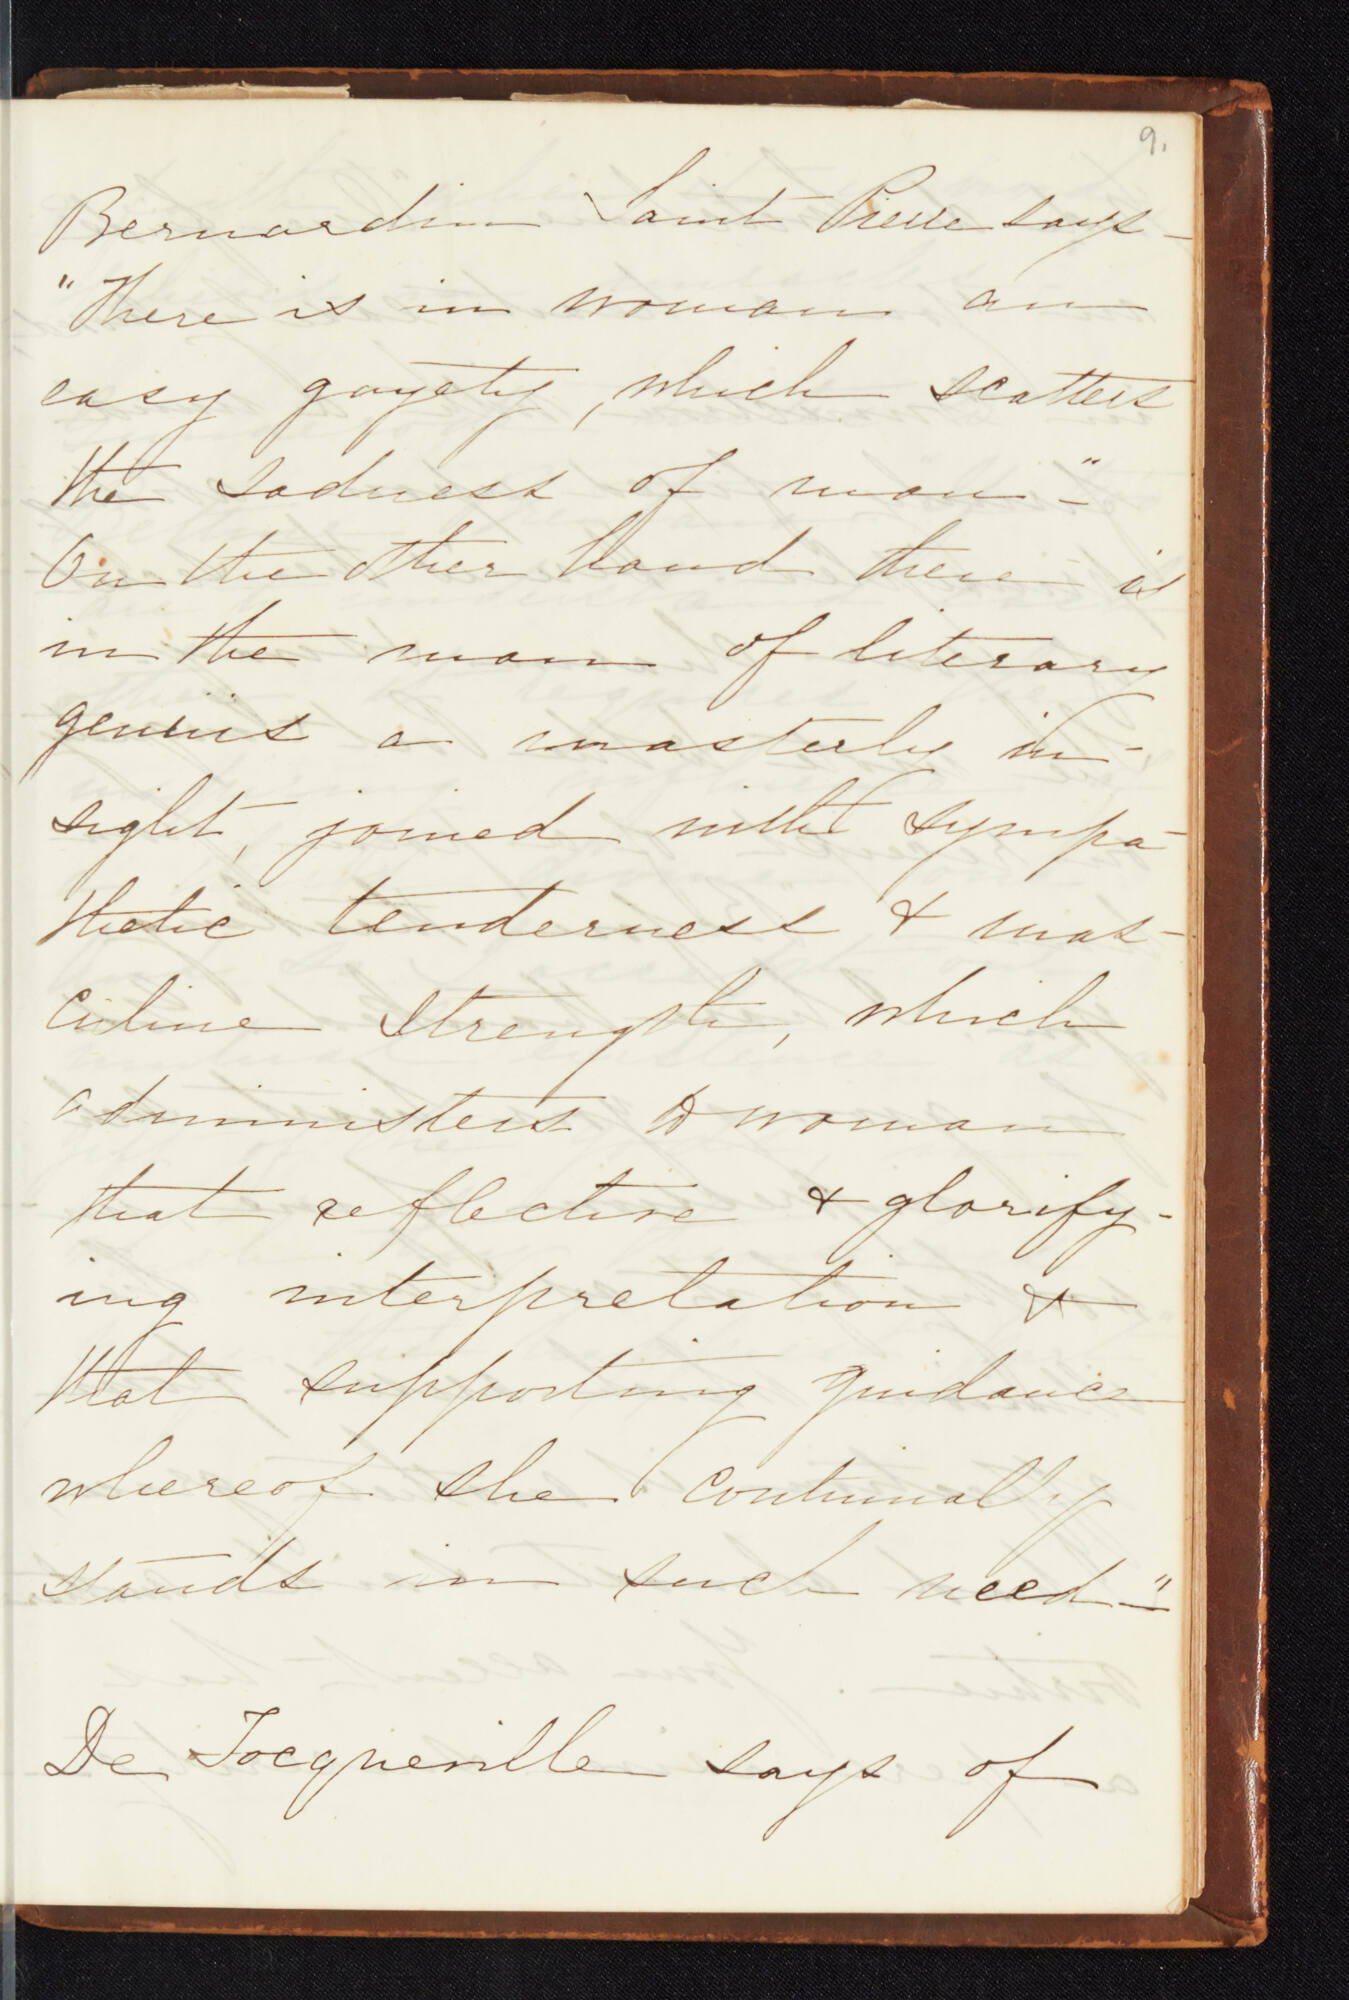 9.
Bernardin Saint Pierre says -
"There is in woman an
easy gayety, which scatters
the sadness of man -"
On the other hand there is
in the man of literary
genius a masterly in-
sight, joined with sympa-
thetic tenderness & mas-
culine strength, which
administers to woman
that reflective & glorify-
ing interpretation &
that supporting guidance
whereof she continually
stands in such need -"
De Tocqueville says of